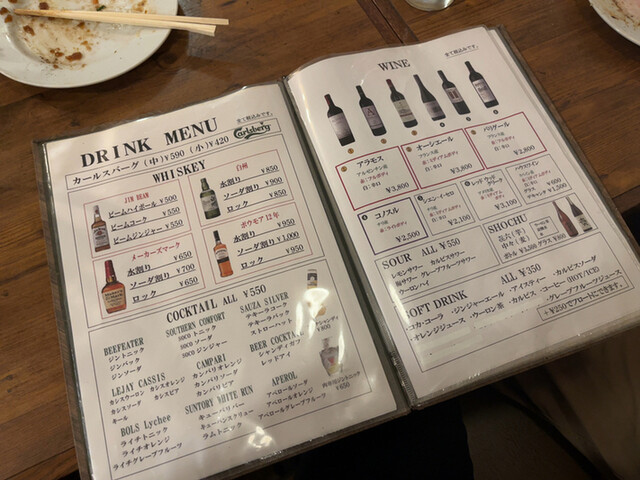 DRINK MENU
全て税込みです。
Carlsberg
カールスバーグ (中)¥590 (小)¥420
WHISKEY
JIM BEAM
ビームハイボール ¥500
ビームコーク ¥550
ビームジンジャー ¥550
白州
水割り ¥850
ソーダ割り ¥900
ロック ¥850
メーカーズマーク
水割り ¥650
ソーダ割り ¥700
ロック ¥650
ボウモア 12年
水割り ¥950
ソーダ割り ¥1,000
ロック ¥950
COCKTAIL ALL ¥550
BEEFEATER
ジントニック
ジンバック
ジンソーダ
SOUTHERN COMFORT
SOCO トニック
SOCO ソーダ
SOCO ジンジャー
SAUZA SILVER
テキーラコーク
テキーラバック
ストローハット
LEJAY CASSIS
カシスウーロン カシスオレンジ
カシスソーダ カシスビア
キール
CAMPARI
カンパリオレンジ
カンパリソーダ
カンパリビア
BEER COCKTAIL
シャンディガフ
レッドアイ
BOLS Lychee
ライチトニック
ライチオレンジ
ライチグレープフルーツ
SUNTORY WHITE RUN
キューバリバー
キューバンスクリュー
ラムトニック
APEROL
アペロールソーダ
アペロールオレンジ
アペロールグレープフルーツ
¥650
WINE
全て税込みです。
アラモス
アルゼンチン産
赤:フルボディ
白:辛口
¥3,800
オーシエール
フランス産
赤:ミディアムボディ
白:辛口
¥3,800
バリグール
フランス産
赤:フルボディ
白:辛口
¥2,800
コノスル
チリ産
¥2,500
¥2,100
レッドウッド
¥3,100
ハウスワイン
SOUR ALL ¥550
レモンサワー カルピスサワー
梅サワー グレープフルーツサワー
ウーロンハイ
SHOCHU
(芋)
(麦)
ボトル ¥3,500 グラス ¥600
SOFT DRINK ALL ¥350
コカ・コーラ ・ジンジャーエール ・アイスティー ・カルピスソーダ
オレンジジュース ・ウーロン茶 ・カルピス ・コーヒー(HOT/ICE)
・グレープフルーツジュース
+¥250でフロートにできます。